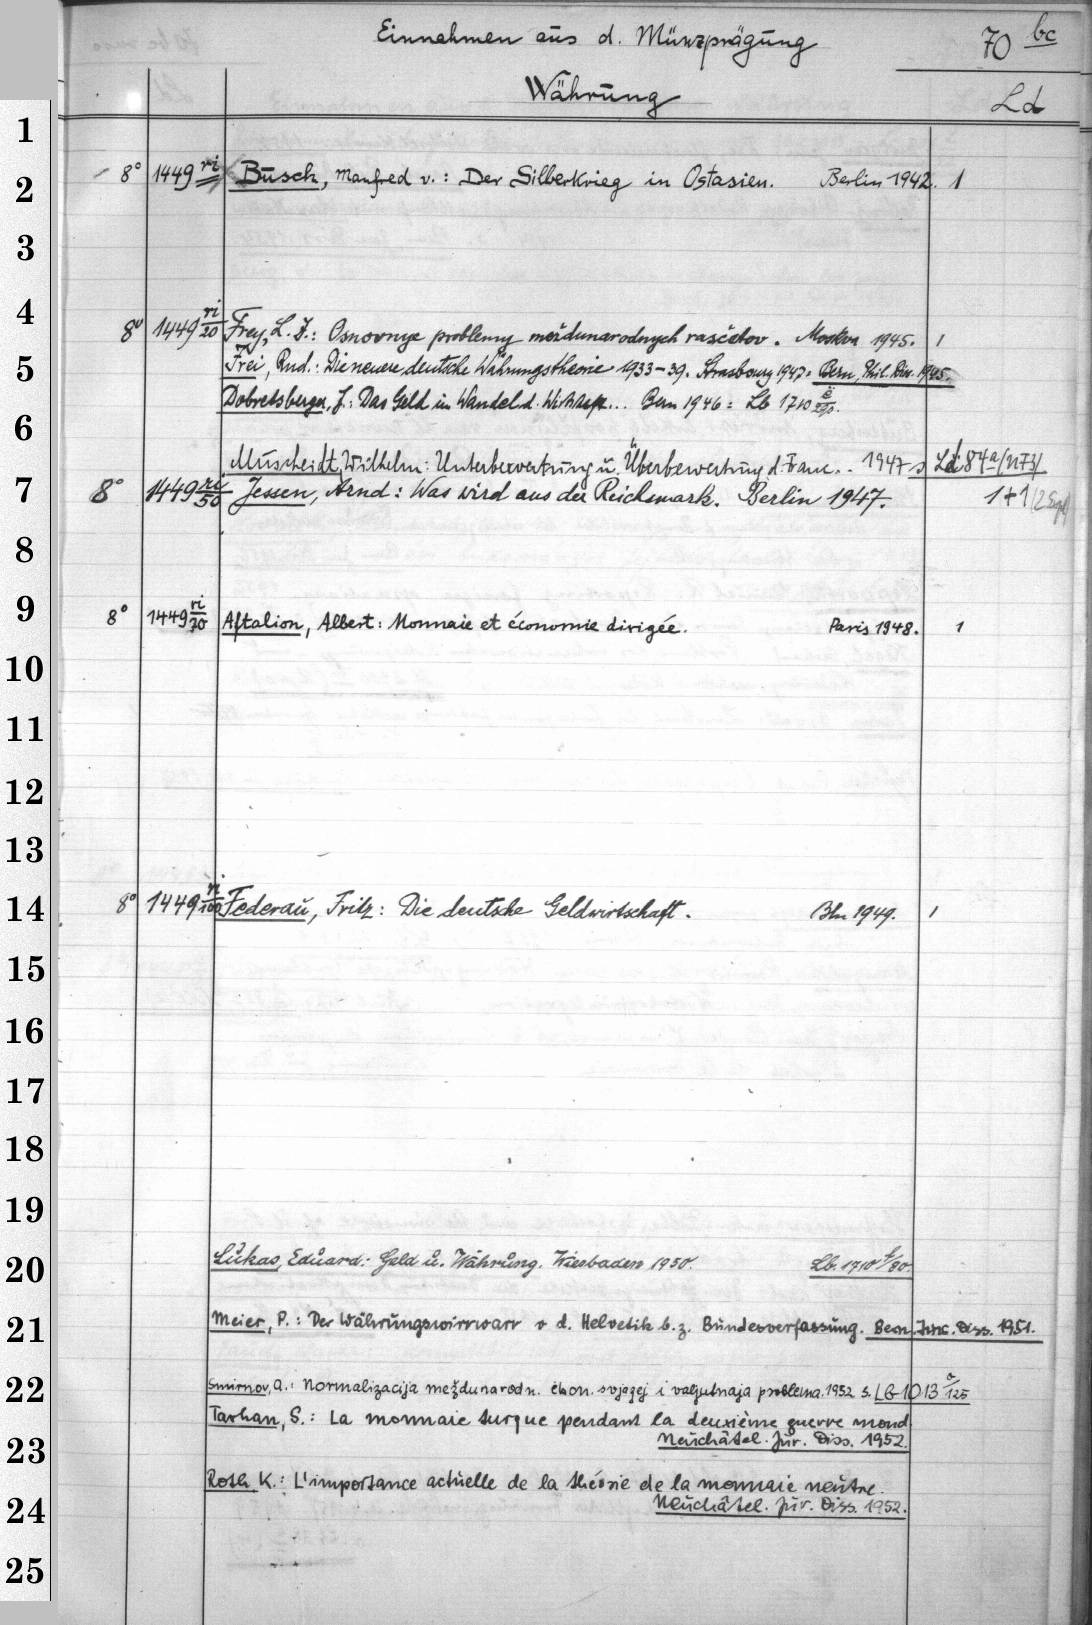 Einnahmen aus d. Münzprägung 70 bc
Währung Ld
1
2 8° 1449 ri Busch, Manfred v.: Der Silberkrieg in Ostasien. Berlin 1942. 1
3
4 8° 1449 ri/20 Frey, L. I.: Osnovnye problemy meždunarodnych rasčetov. Moskva 1945. 1
5 Frei, Rud.: Die neuere deutsche Währungstheorie 1933-39. Strasbourg 1947 = Bern, Phil. Diss. 1945.
Dobretsberger, J.: Das Geld im Wandel d. Wirtsch... Bern 1946 = Lb 1710
6
Muscheidt, Wilhelm: Unterbewertung u. Überbewertung d. Franc.. 1947 s Ld 84a (n73)
7 8° 1449 ri/50 Jessen, Arnd: Was wird aus der Reichsmark. Berlin 1947. 1+1
8
9 8° 1449 ri/70 Aftalion, Albert: Monnaie et économie dirigée. Paris 1948. 1
10
11
12
13
14 8° 1449 ri/100 Federau, Fritz: Die deutsche Geldwirtschaft. Bln 1949. 1
15
16
17
18
19
20 Lukas, Eduard: Geld u. Währung. Wiesbaden 1950. Lb. 1710 f/80
21 Meier, P.: Der Währungswirrwarr v d. Helvetik b. z. Bundesverfassung. Bern, Jur. Diss. 1951.
22 Smirnov, A.: Normalizacija meždunarodn. ėkon. svjazej i valjutnaja problema. 1952 s. Lb 1013 a/125
Tarhan, S.: La monnaie turque pendant la deuxième guerre mond.
23 Neuchâtel. Jur. Diss. 1952.
Roth K.: L'importance actuelle de la théorie de la monnaie neutre.
24 Neuchâtel. Jur. Diss. 1952.
25